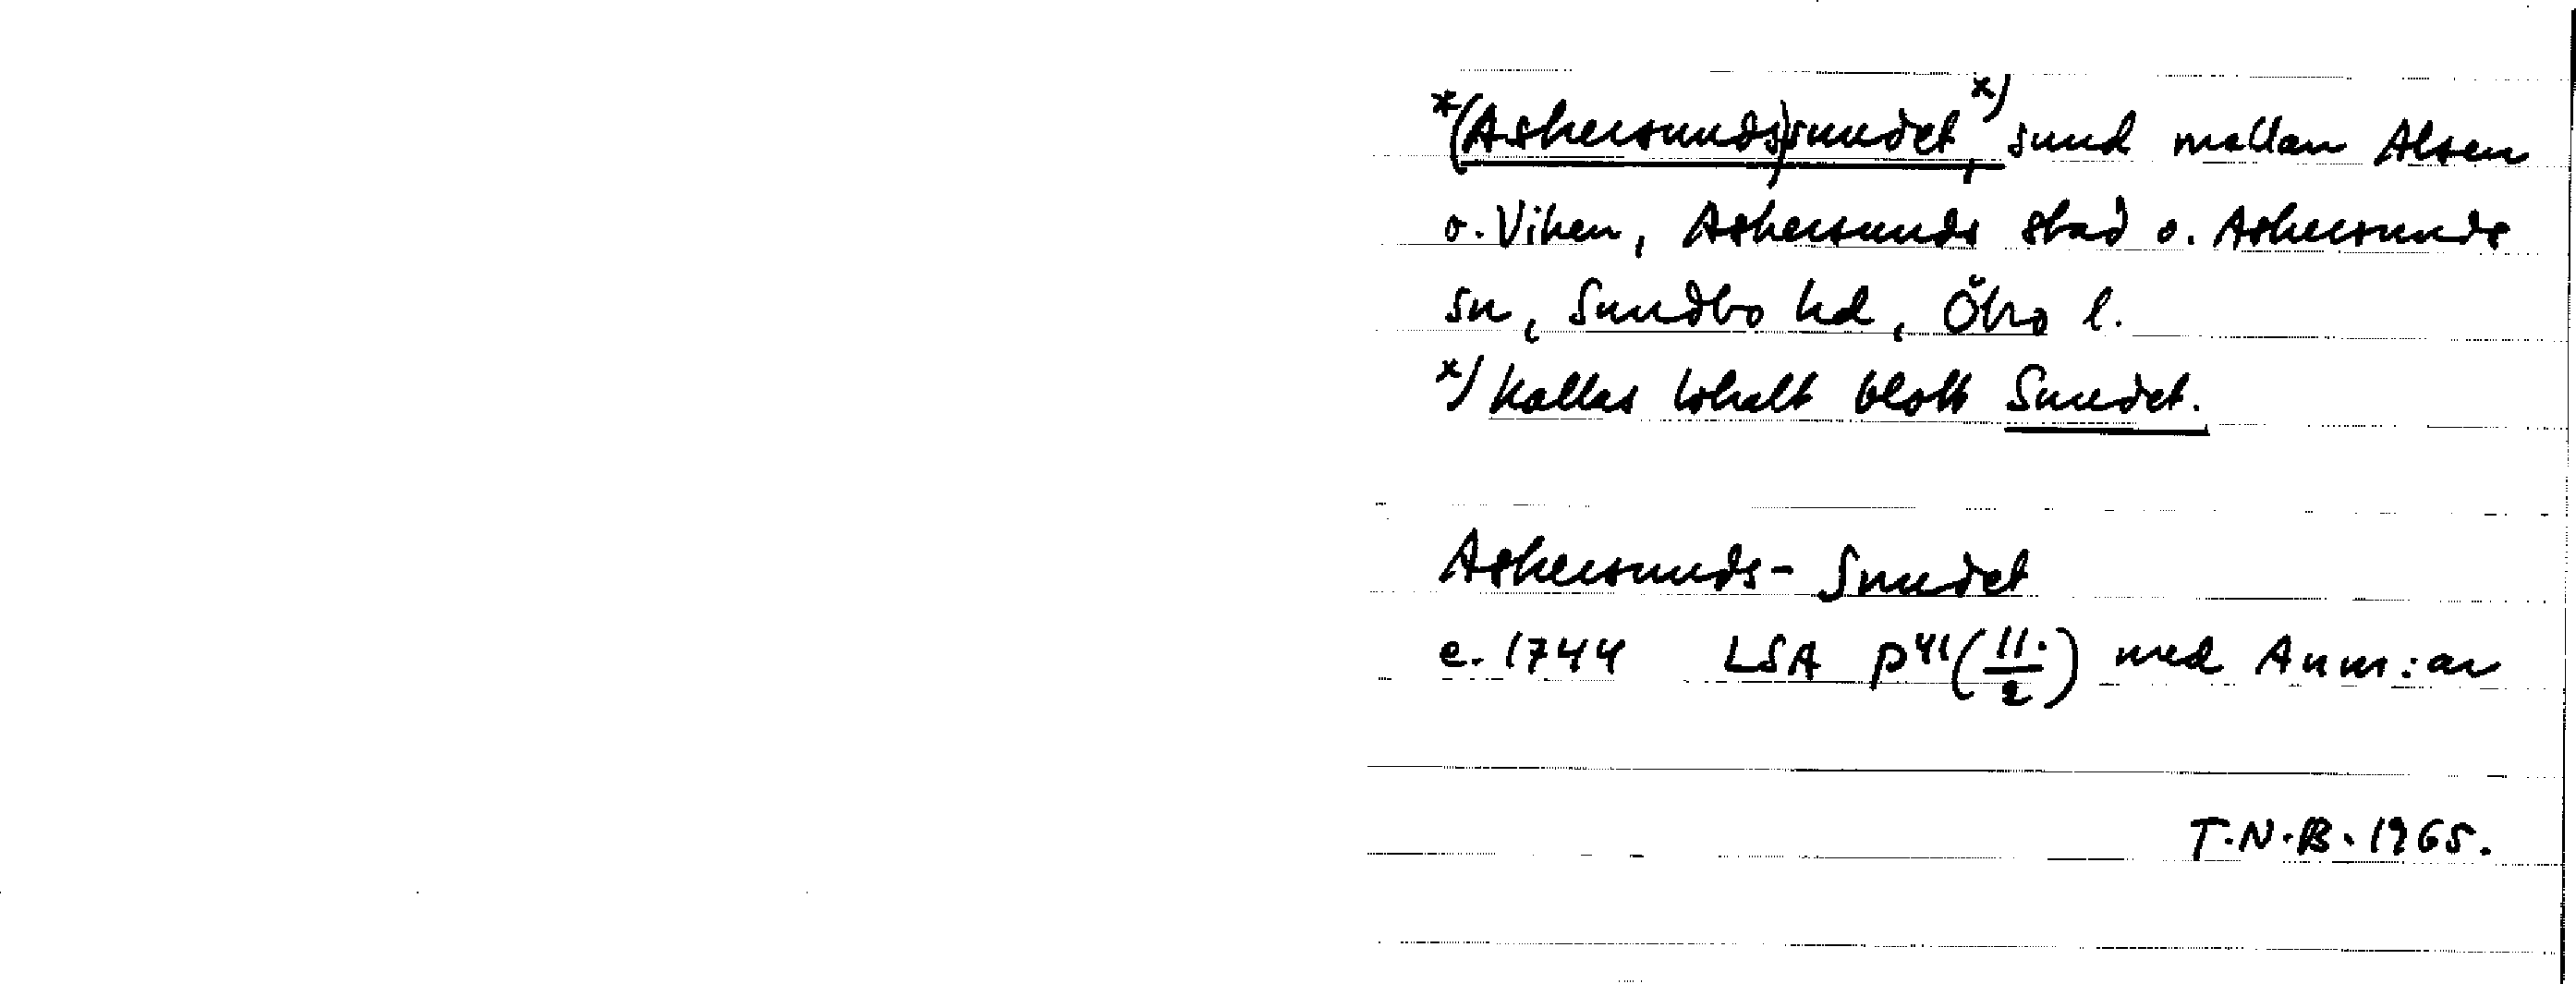 *(Askersunds)sundet, x) sund mellan Alsen
o. Viken, Askersunds stad o. Askersunds
sn, Sundbo hd, Öbro l.
x) Kallas lokalt blott Sundet.
Askersunds-Sundet
e. 1744 LSA P41(11:/2) med Anm:ar
T.N.B. 1965.